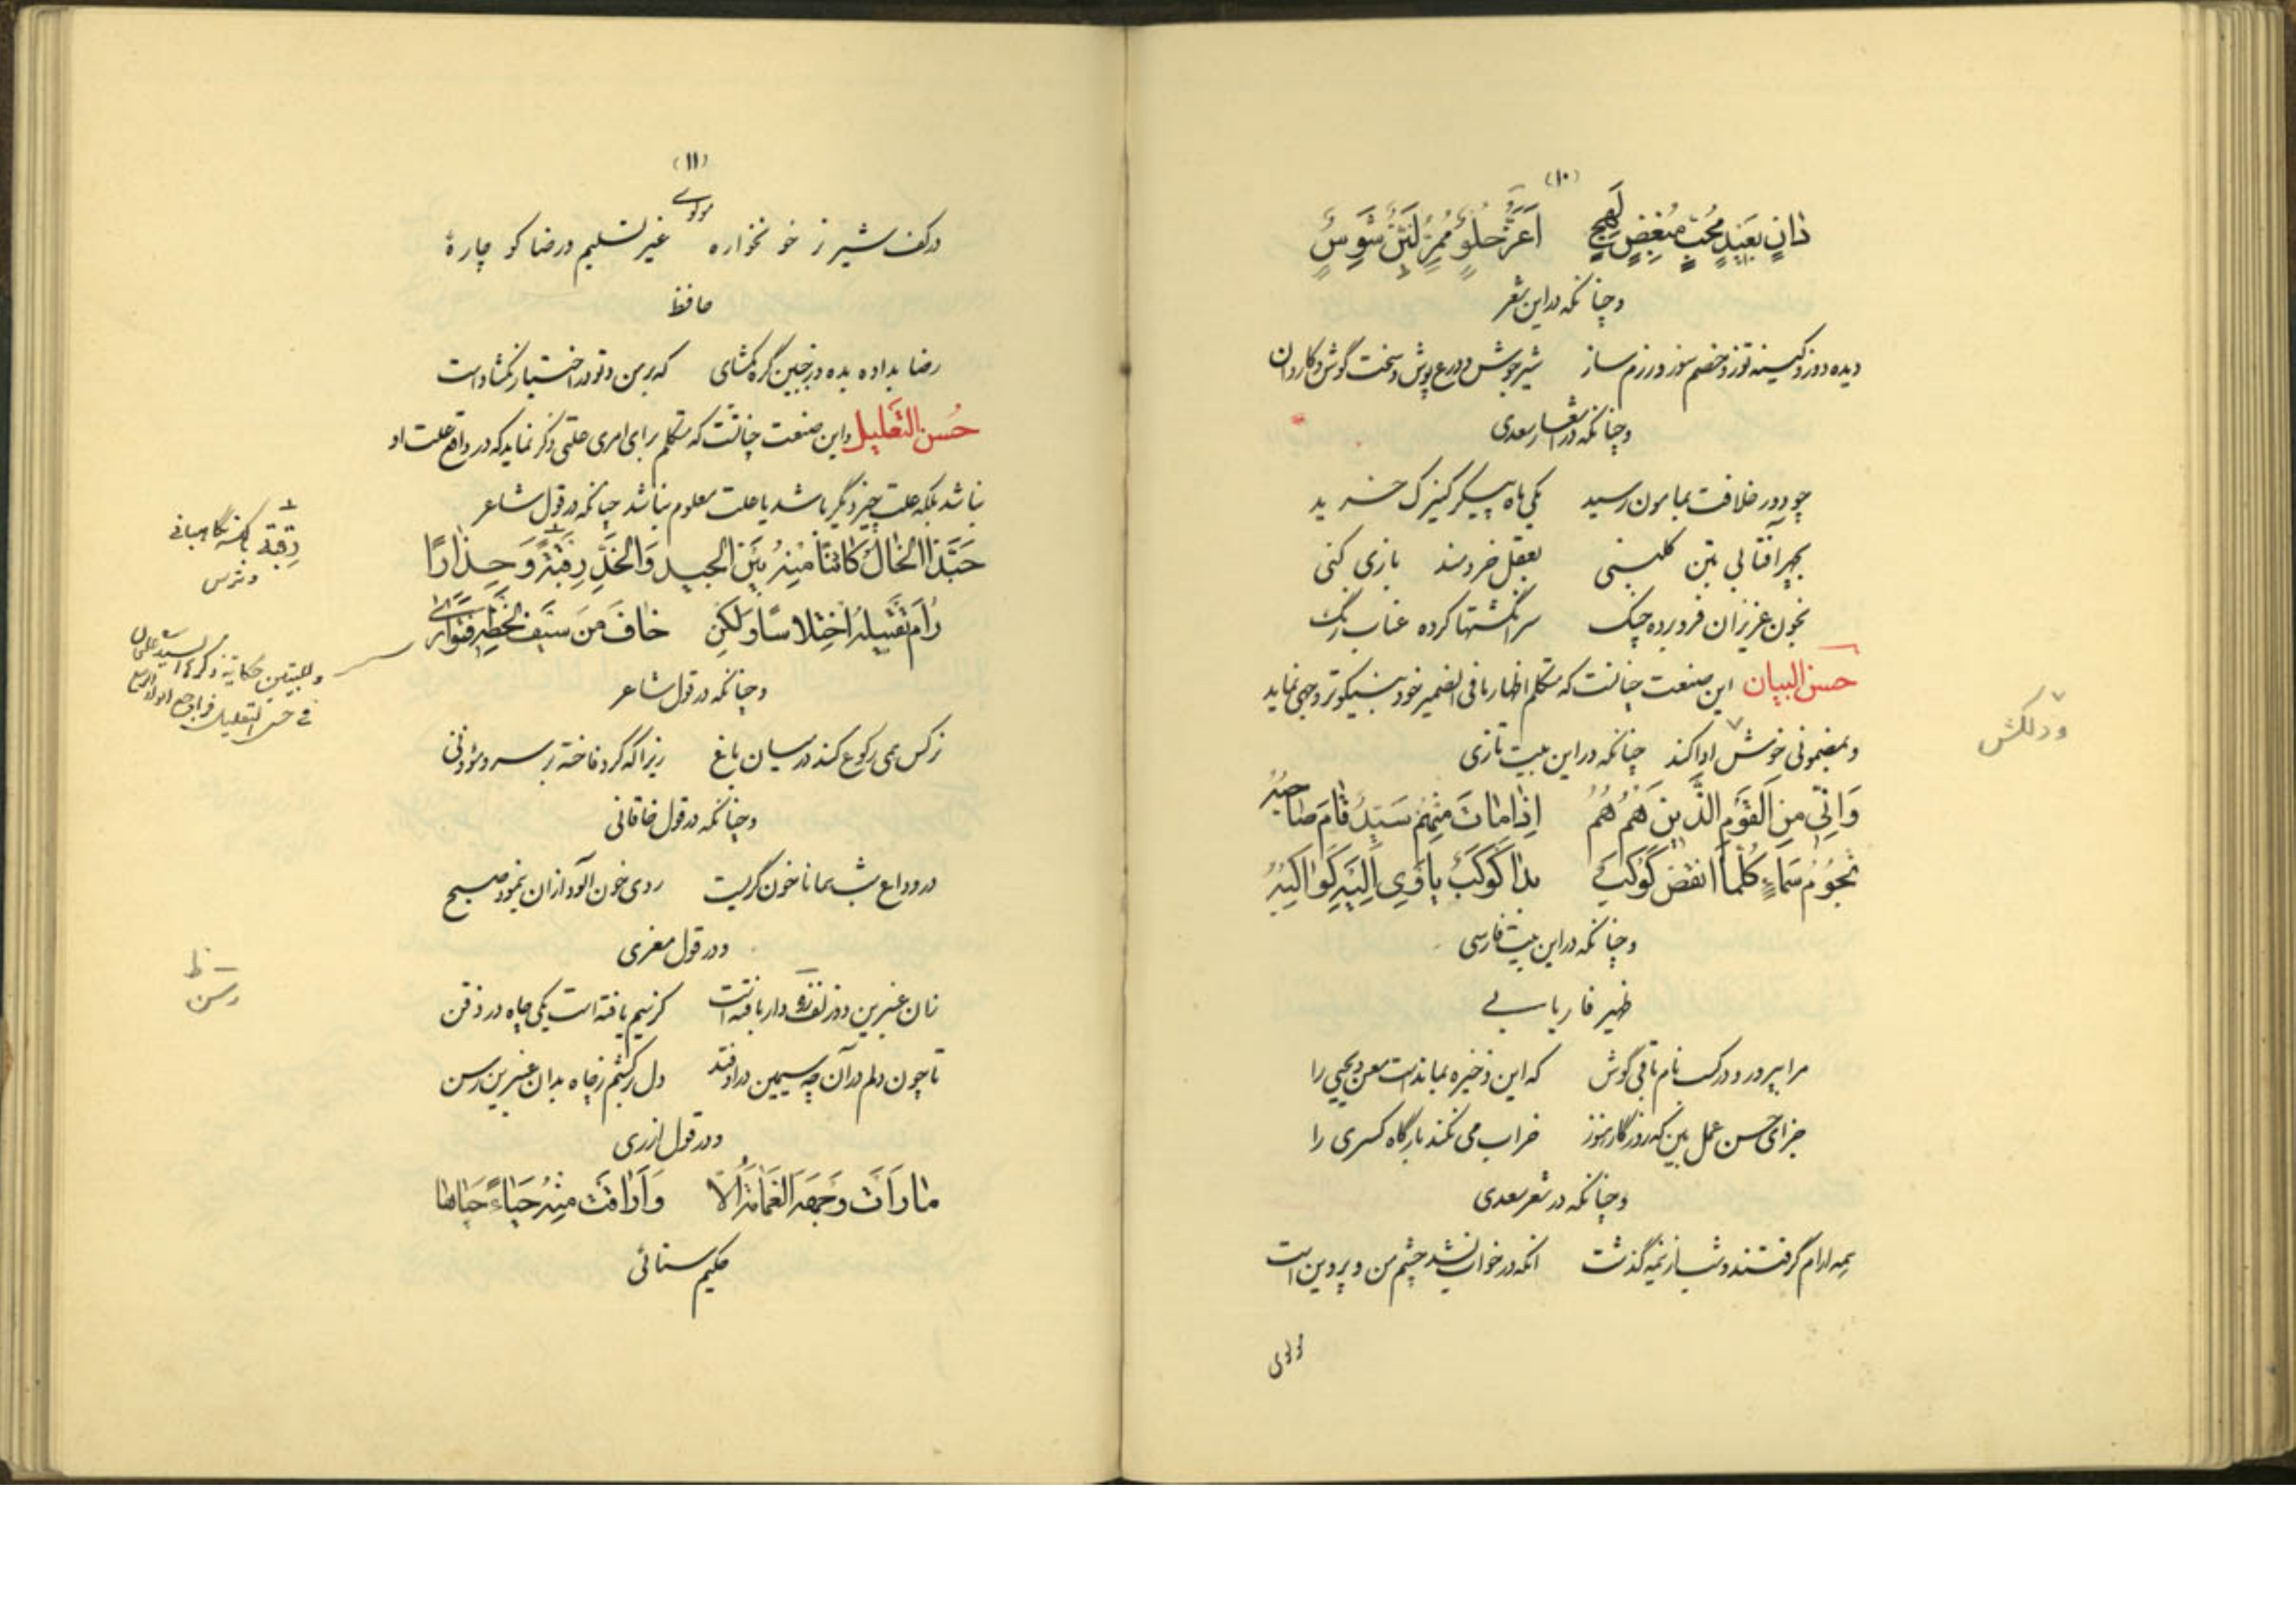 (۱۰)
دَانٍ بَعِيْدٍ مُحِبٍّ مُبْغِضٍ بَهِجٍ اَغَرَّ حُلْوٍ مُمِرٍّ لَيِّنٍ شَرِسٍ
و چنانکه در این شعر
دیده دوز و کینه توز و خصم سوز و رزم ساز شیر جوش و درع پوش و سخت گوش و کاردان
و چنانکه در اشعار سعدی
چو دور خلافت بمامون رسید یکی ماه پیکر کنیزک خرید
بچهر آفتابی بتن گلبنی بعقل خردمند بازی کنی
بخون عزیزان فرو برده چنگ سر انگشتها کرده عناب رنگ
حسن البیان این صنعت چنانست که متکلم اظهار ما فی الضمیر خود بنیکوتر وجهی نماید
و بمضمونی خوش ادا کند چنانکه در این بیت تازی
ودلکش
وَاِنّي مِنَ الْقَوْمِ الَّذينَ هُمُ هُمُ اِذا ماتَ مِنْهُمْ سَيِّدٌ قامَ صاحِبُهُ
نُجُوُمُ سَماءٍ كُلَّما انْقَضَّ كَوْكَبٌ بَدا كَوْكَبٌ يَأوِي اِلَيْهِ كَواكِبُهُ
و چنانکه در این بیت فارسی
ظهیر فاریابی
مرا بپرور و در کسب نام باقی کوش که این ذخیره بماندست معن و یحیی را
جزای حسن عمل بین که روزگار هنوز خراب می نکند بارگاه کسری را
و چنانکه در شعر سعدی
همه آرام گرفتند و شب از نیمه گذشت آنکه در خواب نشد چشم من و پروین است
مولوی
(۱۱)
مولوی
در کف شیر نر خونخواره غیر تسلیم و رضا کو چارهٔ
حافظ
رضا بداده بده وز جبین گره بگشای که بر من و تو در اختیار نگشاداست
حُسن التَّعلیل و این صنعت چنانست که متکلم برای امری علتی ذکر نماید که در واقع علت او
نباشد بلکه علت چیز دیگر باشد یا علت معلوم نباشد چنانکه در قول شاعر
حَبَّذَا الْخالُ كائِناً مِنْهُ بَيْنَ الْجيدِ وَالْخَدِّ رِقْبَةً وَحِذارًا
رِقبة بالکسر نگاهبانی
و ترس
رامَ تَقْبيلَهُ اخْتِلاسًا وَلكِنْ خافَ مِنْ سَيْفِ لَحْظِهِ فَتَوارى
وللبیتین حکایة ذکرها السید علیخان
فی حسن التعلیل فراجع انوار الربیع
و چنانکه در قول شاعر
نرگس همی رکوع کند در میان باغ زیرا که کرد فاخته بر سرو مؤذنی
و چنانکه در قول خاقانی
در وداع شب همانا خون گریست روی خون آلود از آن بنمود صبح
و در قول معزی
زان عنبرین دو زلف زره دار بافته است کز سیم یافته است یکی چاه در ذقن
تا چون دلم در آن چه سیمین در اوفتد دل برکشم ز چاه بدان عنبرین رسن
رسن
و در قول ازری
ما رَاَتْ وَجْهَهُ الْغَمامَةُ اِلاّ وَاَراقَتْ مِنْهُ حَياءً حَياها
حکیم سنائی